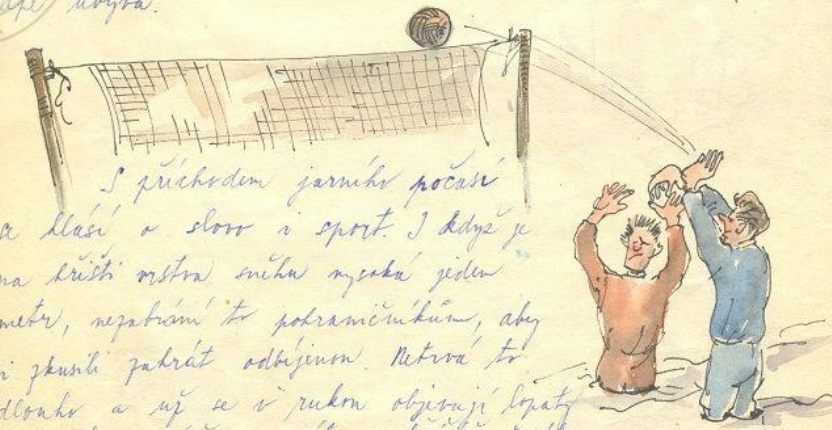 ubývá.
S příchodem jarního počasí
se hlásí o slovo i sport. I když je
na hřišti vrstva sněhu vysoká jeden
metr, nezabrání to pohraničníkům, aby
si zkusili zahrát odbíjenou. Netrvá to
dlouho a už se v rukou objevují lopaty